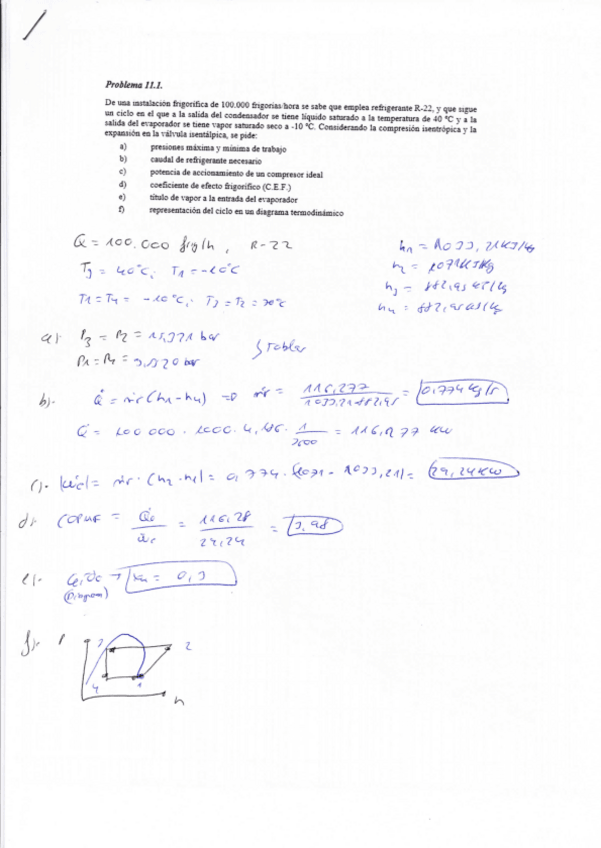 Problema 11.1.
De una instalación frigorífica de 100.000 frigorías/hora se sabe que emplea refrigerante R-22, y que sigue
un ciclo en el que a la salida del condensador se tiene líquido saturado a la temperatura de 40 ºC y a la
salida del evaporador se tiene vapor saturado seco a -10 ºC. Considerando la compresión isentrópica y la
expansión en la válvula isentálpica, se pide:
a) presiones máxima y mínima de trabajo
b) caudal de refrigerante necesario
c) potencia de accionamiento de un compresor ideal
d) coeficiente de efecto frigorífico (C.E.F.)
e) título de vapor a la entrada del evaporador
f) representación del ciclo en un diagrama termodinámico
Q = 100.000 frig/h, R-22
h1 = 1033,21 KJ/Kg
T3 = 40°C; T1 = -10°C
h2 = 1071 KJ/Kg
h3 = 882,95 KJ/Kg
T1 = T4 = -10°C; T3 = T2 =
h4 = 882,95 KJ/Kg
a). P3 = P2 = 15,331 bar
P1 = P4 = bar } tablas
b). Q̇ = ṁr (h1 - h4) => ṁr = 116,277 / 1033,21 - 882,95 = 0,774 kg/s
Q = 100000 · 1000 · 4,186 · 1/3600 = 116,277 KW
c). = ṁr · (h2 - h1) = 0,774 · (1071 - 1033,21) = 29,24 KW
d). = 116,28 / 29,24 = 3,98
e). → x4 = 0,3
(Diagram)
f). P 3 2
4 1
h